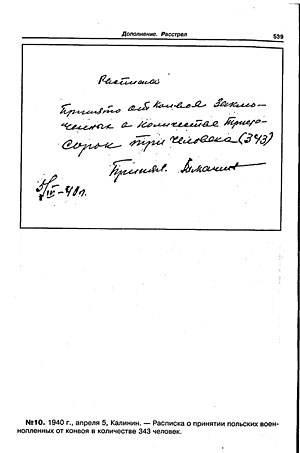 Дополнение. Расстрел 539
Расписка
Принято от конвоя заклю-
ченных в количестве триста
сорок три человека (343)
Принял.
5/IV-40 г.
№10. 1940 г., апреля 5, Калинин. — Расписка о принятии польских воен-
нопленных от конвоя в количестве 343 человек.